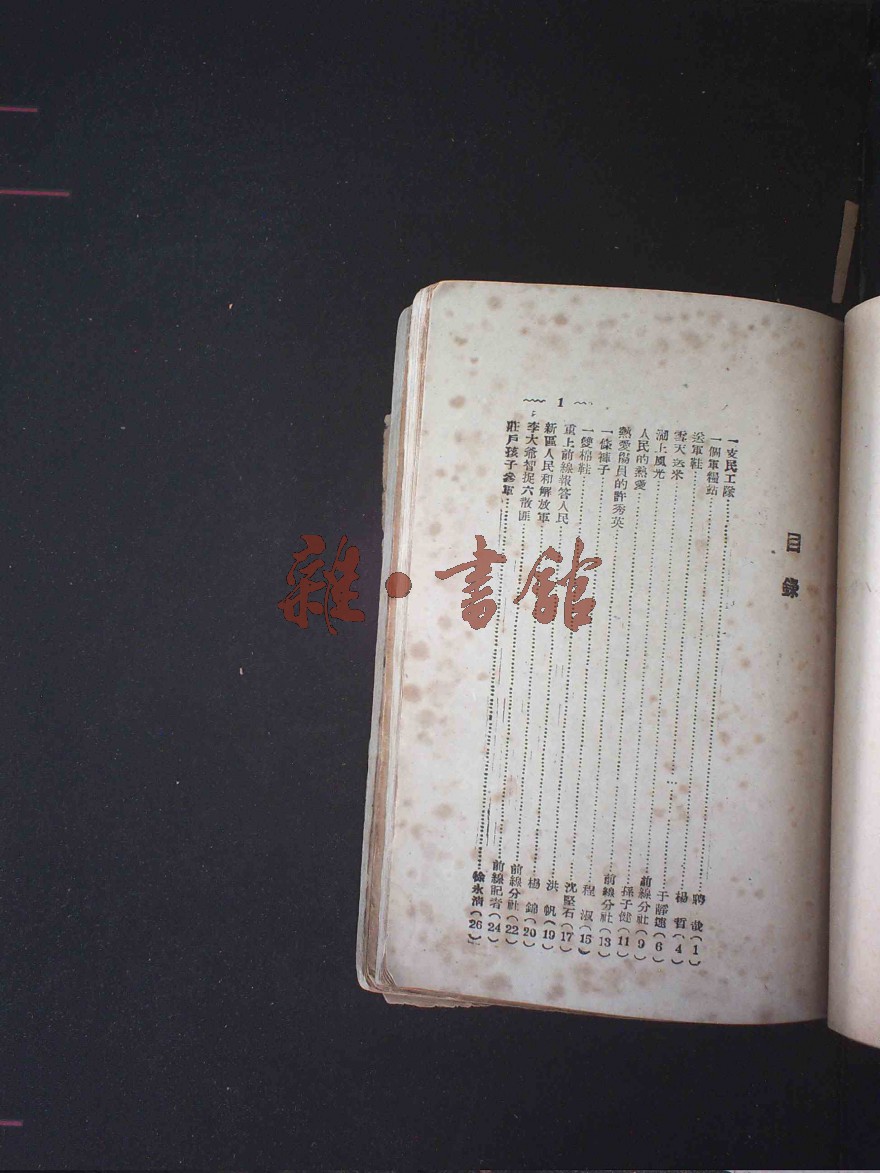 目錄
一支民工隊……聘哉(1)
一個軍糧站……楊哲(4)
送軍鞋……于靜遠(6)
雪天送米……前線分社(9)
湖上風光……孫于健(11)
人民的熱愛……前線分社(13)
熱愛傷員的許秀英……程淑(15)
一條褲子……沈堅石(17)
一雙棉鞋……洪帆(19)
重上前線報答人民……楊錦(20)
新區人民和解放軍……前線分社(22)
李大爺智捉六散匪……前線記者(24)
莊戶孩子參軍……徐永清(26)
1
雜·書館